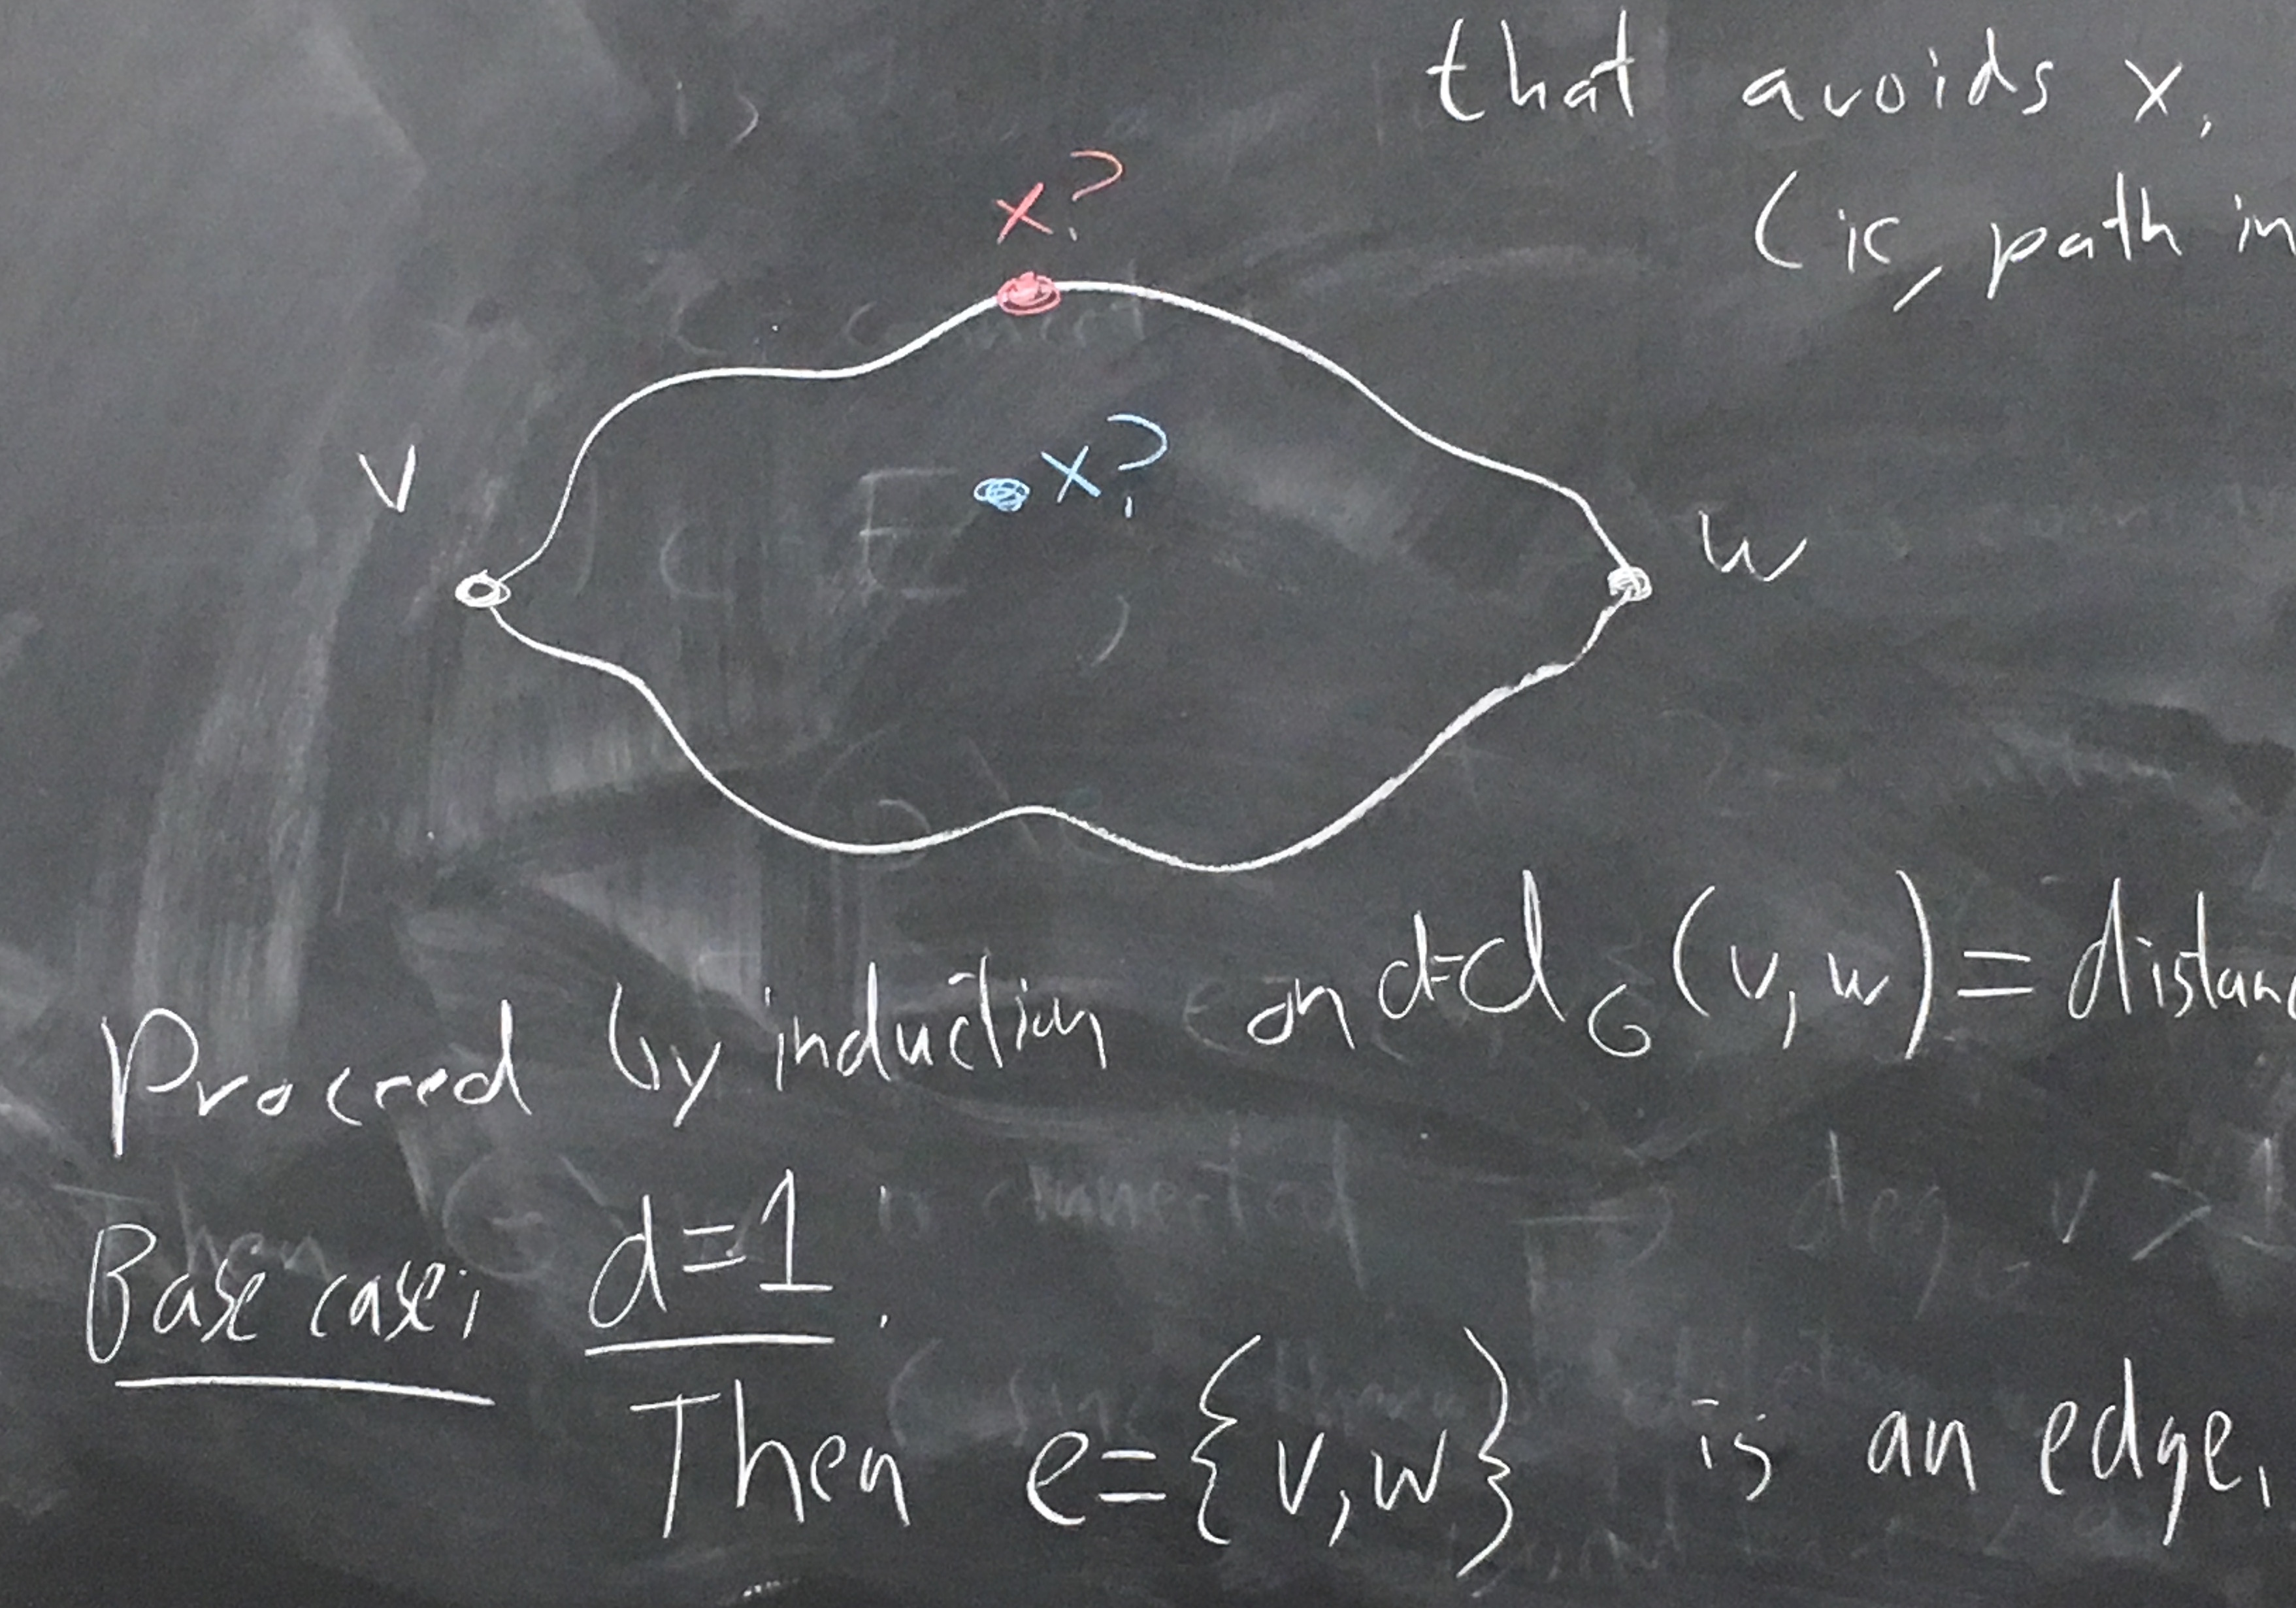 that avoids x.
(ie, path in
x?
x?
v
w
Proceed by induction on d=d_G(v,w) = distanc
Base case: d=1.
Then e={v,w} is an edge,